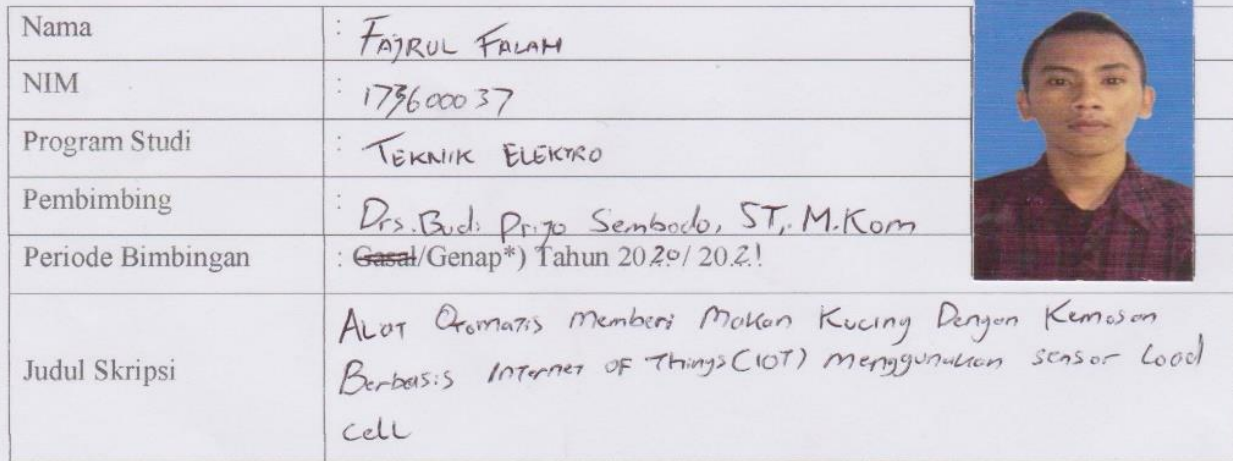 Nama : FAJRUL FALAH
NIM : 173600037
Program Studi : TEKNIK ELEKTRO
Pembimbing : Drs. Budi Prijo Sembodo, ST,. M.Kom
Periode Bimbingan : Gasal/Genap*) Tahun 2020/2021
Judul Skripsi : ALAT Otomatis Memberi Makan Kucing Dengan Kemasan
Berbasis Internet OF Things (IOT) Menggunakan sensor Load
Cell